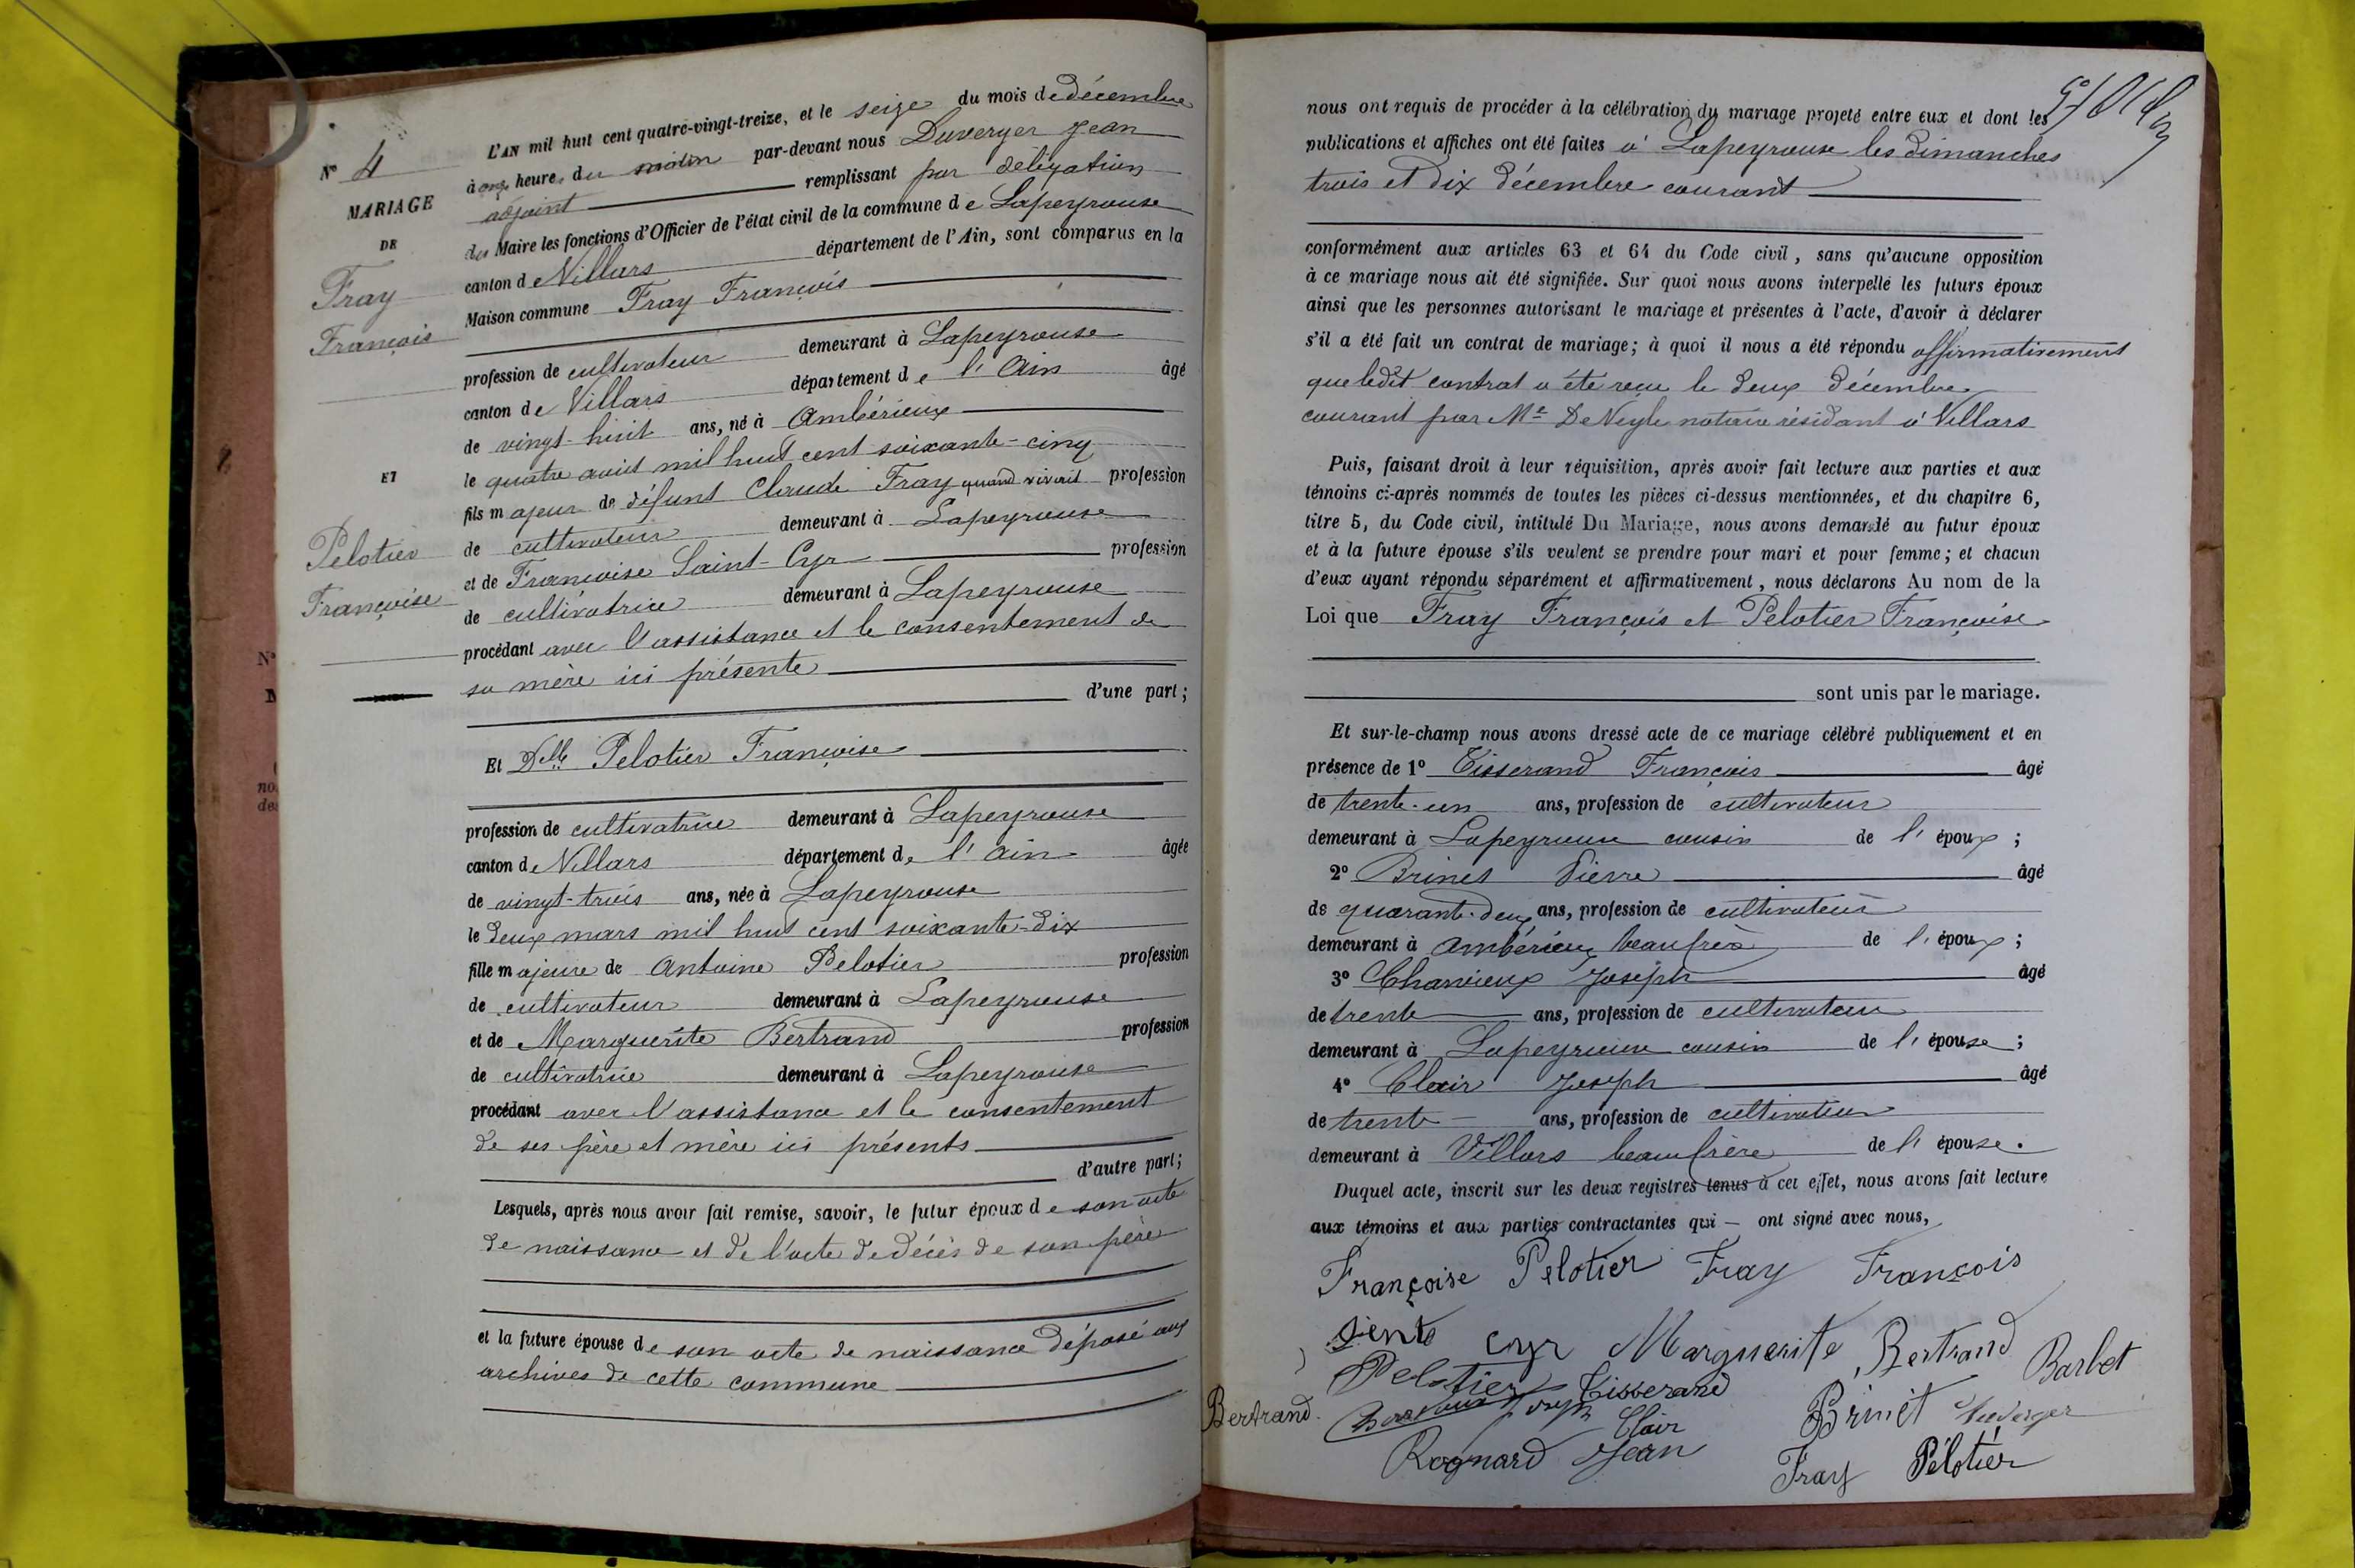 N° 4
MARIAGE
DE
Fray
François
ET
Pelotier
Françoise
L'AN mil huit cent quatre-vingt-treize, et le seize du mois de décembre
à onze heures du matin par-devant nous Duverger Jean
adjoint remplissant par délégation
du Maire les fonctions d'Officier de l'état civil de la commune de Lapeyrouse
canton de Villars département de l'Ain, sont comparus en la
Maison commune Fray François
profession de cultivateur demeurant à Lapeyrouse
canton de Villars département de l'Ain âgé
de vingt-huit ans, né à Ambérieux
le quatre août mil huit cent soixante-cinq
fils majeur de défunt Claude Fray quand vivait profession
de cultivateur demeurant à Lapeyrouse
et de Francoise Saint-Cyr profession
de cultivatrice demeurant à Lapeyrouse
procédant avec l'assistance et le consentement de
sa mère ici présente
d'une part;
Et Delle Pelotier Françoise
profession de cultivatrice demeurant à Lapeyrouse
canton de Villars département de l'Ain âgée
de vingt-trois ans, née à Lapeyrouse
le deux mars mil huit cent soixante-dix
fille majeure de Antoine Pelotier profession
de cultivateur demeurant à Lapeyrouse
et de Marguerite Bertrand profession
de cultivatrice demeurant à Lapeyrouse
procédant avec l'assistance et le consentement
de ses père et mère ici présents
d'autre part;
Lesquels, après nous avoir fait remise, savoir, le futur époux de son acte
de naissance et de l'acte de décès de son père
et la future épouse de son acte de naissance déposé aux
archives de cette commune
nous ont requis de procéder à la célébration du mariage projeté entre eux et dont les
publications et affiches ont été faites à Lapeyrouse les dimanches
trois et dix décembre courant
conformément aux articles 63 et 64 du Code civil, sans qu'aucune opposition
à ce mariage nous ait été signifiée. Sur quoi nous avons interpellé les futurs époux
ainsi que les personnes autorisant le mariage et présentes à l'acte, d'avoir à déclarer
s'il a été fait un contrat de mariage; à quoi il nous a été répondu affirmativement
que ledit contrat a été reçu le deux décembre
courant par Me DeNeyle notaire résidant à Villars
Puis, faisant droit à leur réquisition, après avoir fait lecture aux parties et aux
témoins ci-après nommés de toutes les pièces ci-dessus mentionnées, et du chapitre 6,
titre 5, du Code civil, intitulé Du Mariage, nous avons demandé au futur époux
et à la future épouse s'ils veulent se prendre pour mari et pour femme; et chacun
d'eux ayant répondu séparément et affirmativement, nous déclarons Au nom de la
Loi que Fray François et Pelotier Françoise
sont unis par le mariage.
Et sur-le-champ nous avons dressé acte de ce mariage célébré publiquement et en
présence de 1° Tisserand François âgé
de trente-un ans, profession de cultivateur
demeurant à Lapeyrouse cousin de l'époux;
2° Brinet Pierre âgé
de quarante-deux ans, profession de cultivateur
demeurant à Ambérieux beaufrère de l'époux;
3° Charvieux Joseph âgé
de trente ans, profession de cultivateur
demeurant à Lapeyrouse cousin de l'épouse;
4° Clair Joseph âgé
de trente ans, profession de cultivateur
demeurant à Villars beaufrère de l'épouse.
Duquel acte, inscrit sur les deux registres tenus à cet effet, nous avons fait lecture
aux témoins et aux parties contractantes qui — ont signé avec nous,
Françoise Pelotier Fray François
Sente Cyr Marguerite Bertrand Barbet
Pelotier Tisserand
Bertrand Joseph Clair Brinet Duverger
Rognard Jean Fray Pélotier